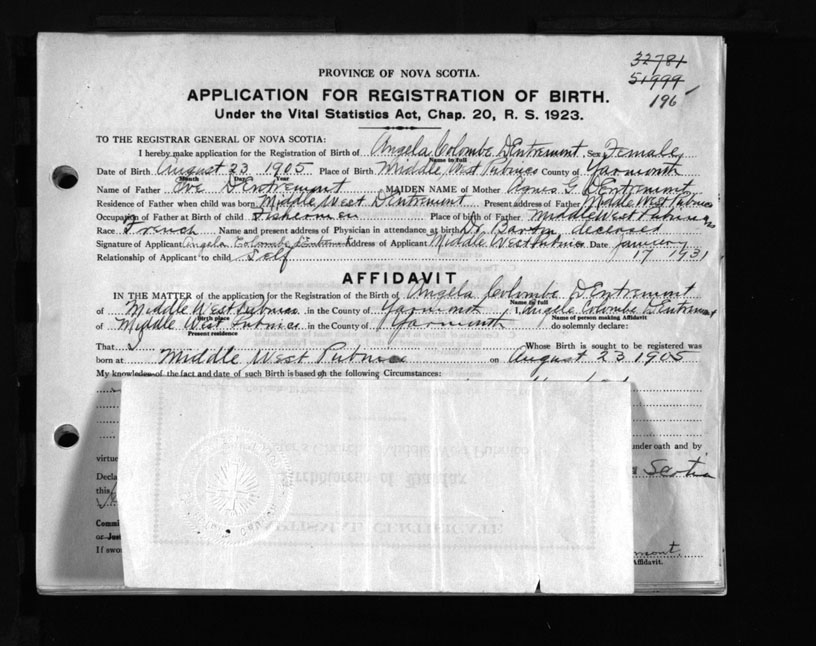 32781
51999
196
PROVINCE OF NOVA SCOTIA.
APPLICATION FOR REGISTRATION OF BIRTH.
Under the Vital Statistics Act, Chap. 20, R. S. 1923.
TO THE REGISTRAR GENERAL OF NOVA SCOTIA:
I hereby make application for the Registration of Birth of Angela Colombe D'Entremont, Sex Female
Name in full
Date of Birth August 23 1905 Place of Birth Middle West Pubnico County of Yarmouth
Month Day Year
Name of Father D'Entremont MAIDEN NAME of Mother Agnes G. D'Entremont
Residence of Father when child was born Middle West D'Entremont Present address of Father Middle West Pubnico
Occupation of Father at Birth of child Fishermen Place of Birth of Father Middle West Pubnico
Race French Name and present address of Physician in attendance at birth Dr. deceased
Signature of Applicant Angela Colombe D'Entremont Address of Applicant Middle West Pubnico Date January
Relationship of Applicant to child Self 17 1931
AFFIDAVIT
IN THE MATTER of the application for the Registration of the Birth of Angela Colombe D'Entremont
Name in full
of Middle West Pubnico in the County of Yarmouth I, Angela Colombe D'Entremont
Birth place Name of person making Affidavit
of Middle West Pubnico in the County of Yarmouth do solemnly declare:
Present residence
That I Whose Birth is sought to be registered was
born at Middle West Pubnico on August 23 1905
My knowledge of the fact and date of such Birth is based on the following Circumstances:
under oath and by
virtue
Scotia
Decla
this
Commi
or Just
If swor
Affidavit.
BAPTISMAL CERTIFICATE
Archdiocese of Halifax